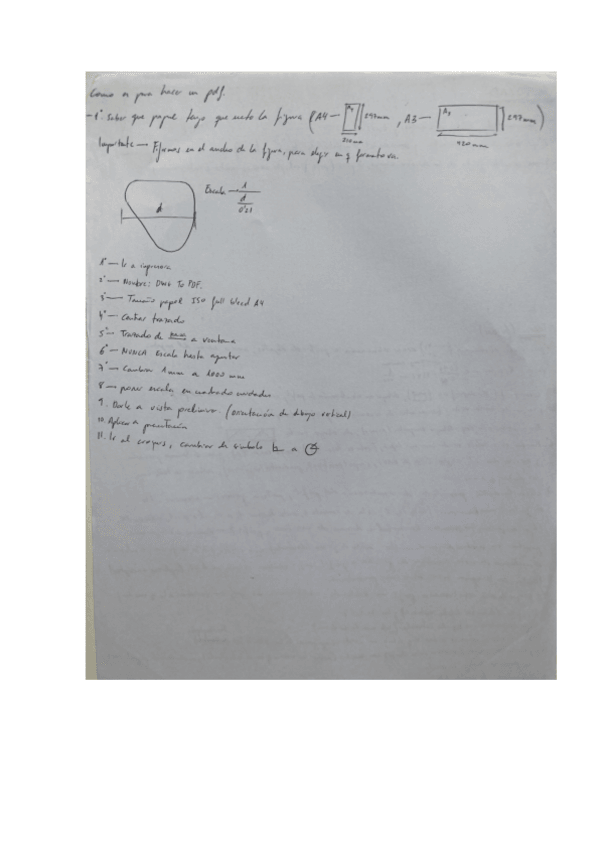 Como es para hacer un pdf.
- 1º. Saber que papel tengo que meto la figura (A4 — A4 297mm , A3 — A3 297mm)
210mm 420mm
Importante — Fijarnos en el ancho de la figura, para elegir un formato
d Escala — 1
d
0'21
1º — Ir a imprimir
2º — Nombre: DWG To PDF.
3º — Tamaño papel ISO full bleed A4
4º — Centrar trazado
5º — Trazados de a ventana
6º — NUNCA escala hasta ajustar
7º — Cambiar 1mm a 1000 mm
8 — poner escala en cuadrado unidades
9. Darle a vista preliminar. (orientación de dibujo vertical)
10. Aplicar a presentación
11. Ir al, cambiar de símbolo a